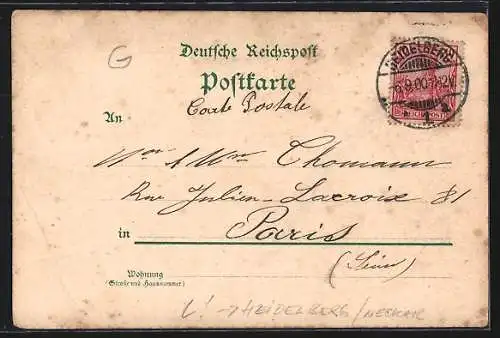 G
Deutsche Reichspost
Postkarte
Carte Postale
HEIDELBERG
6.9.00.
REICHSPOST
An
Thomann
Rue Julien-Lacroix 81
in Paris
(Seine)
Wohnung
(Straße und Hausnummer)
→ HEIDELBERG / NECKAR